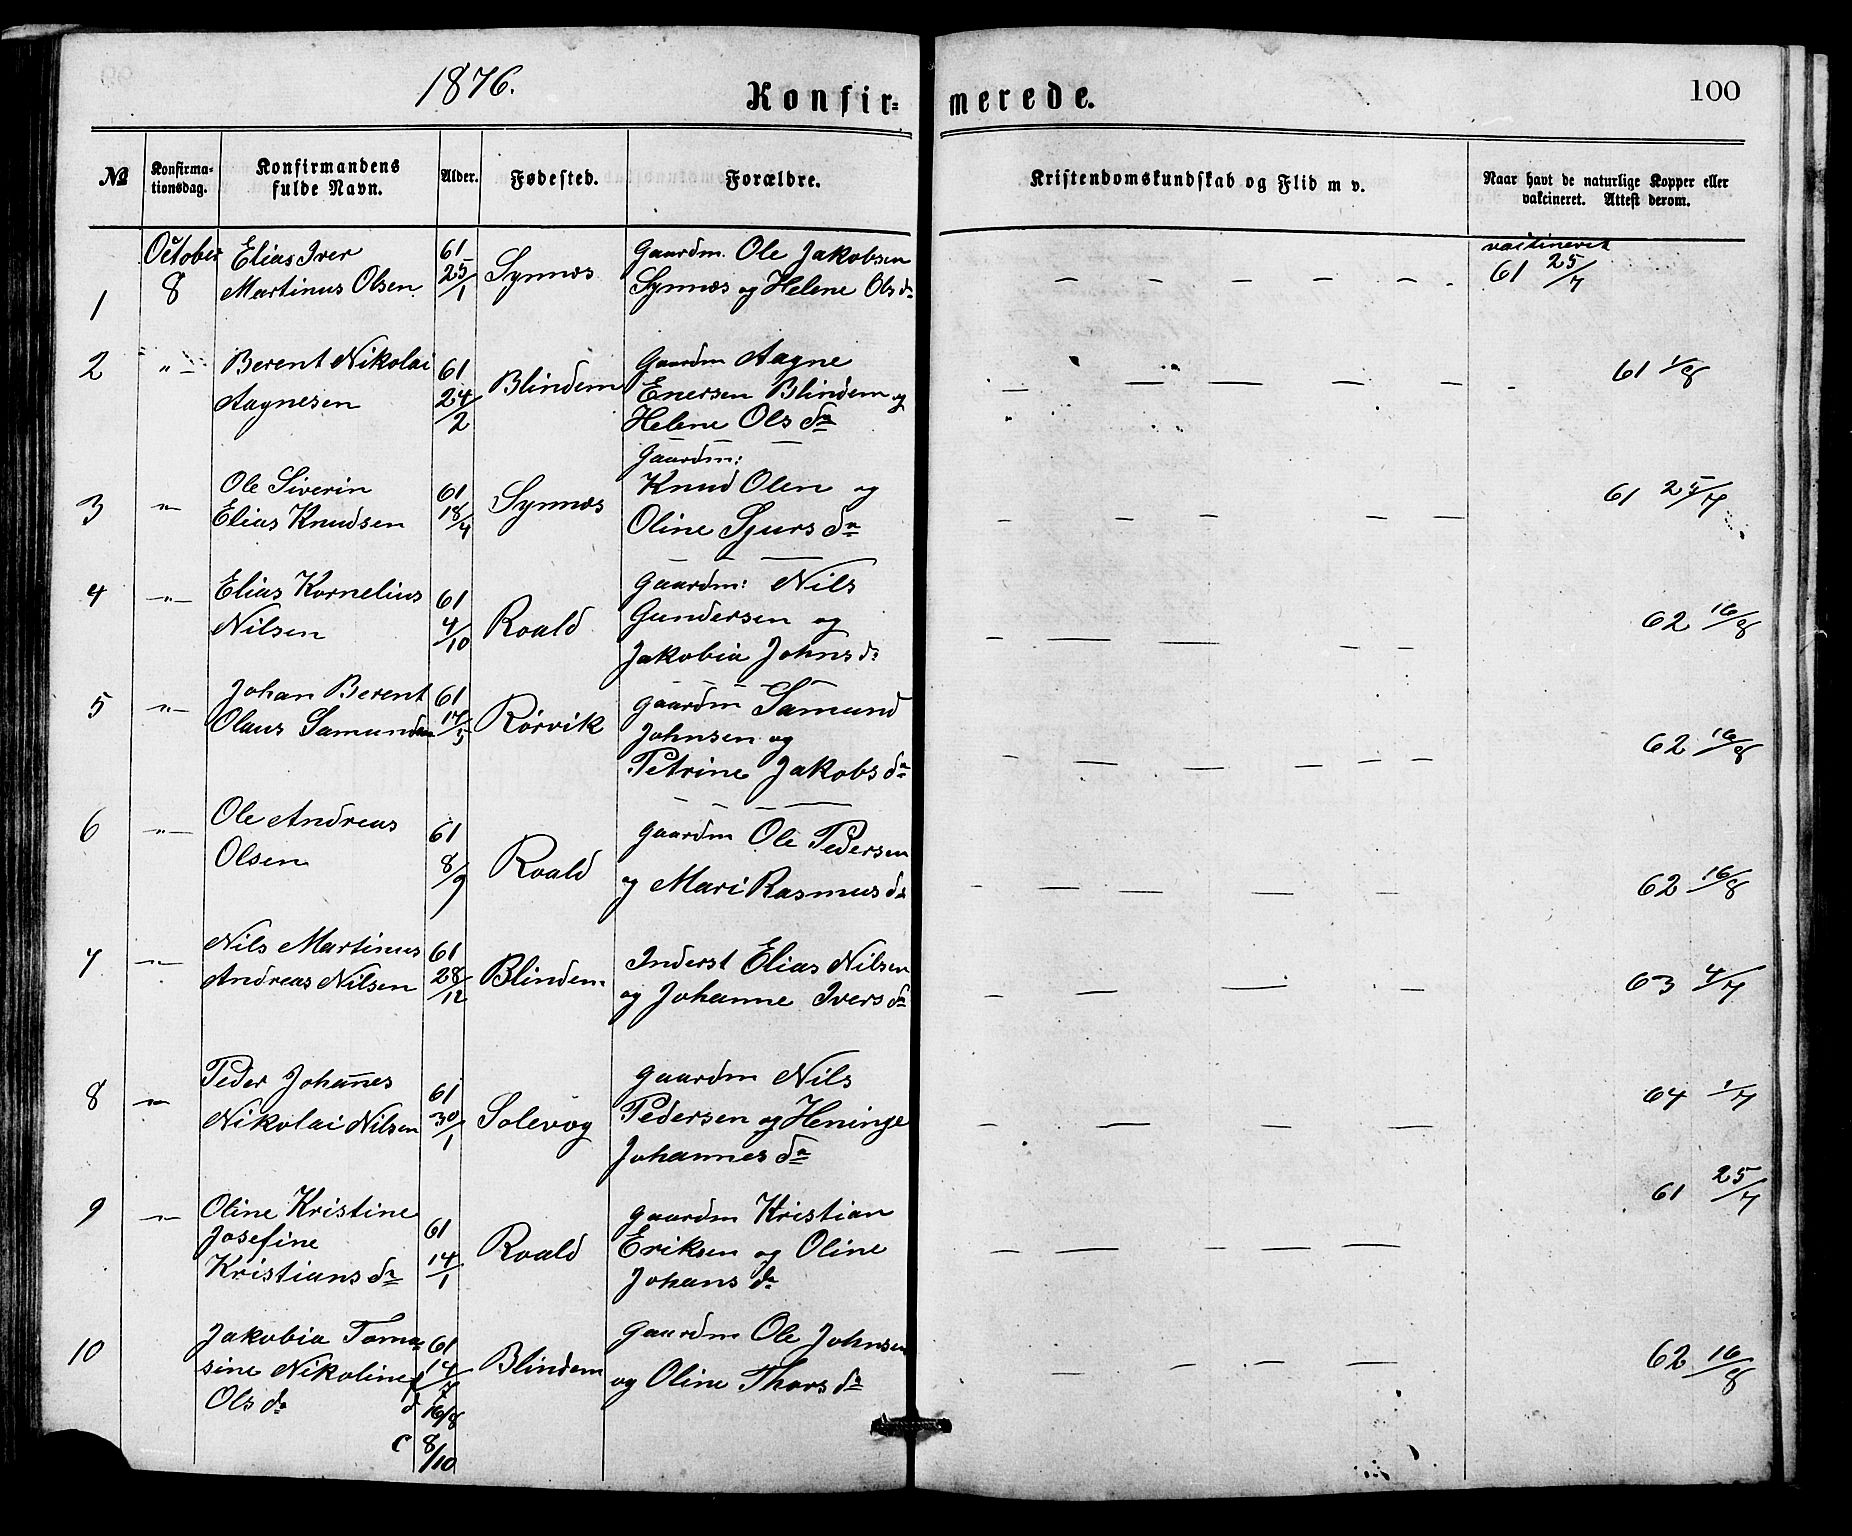 1876.
Konfir= merede.
100
№
Konfirma-
tionsdag.
Konfirmandens
fulde Navn.
Alder.
Fødested.
Forældre.
Kristendomskundskab og Flid m v.
Naar havt de naturlige Kopper eller
vakcineret. Attest derom.
1
October
8
Elias Iver
Martinus Olsen
61
25/1
Synnæs
Gaardm. Ole Jakobsen
Synnæs og Helene Olsdr
— — — — — -
vactineret
61 25/7
2
-"-
Berent Nikolai
Aagnesen
61
24/2
Blindem
Gaardm Aagne
Enersen Blindem og
Helene Ols dr
— — — — — -
61 1/8
3
-"-
Ole Siverin
Elias Knudsen
61
18/4
Synnæs
Gaardm:
Knud Olen og
Oline Sjurs dr
— — — — —
61 25/7
4
-"-
Elias Kornelius
Nilsen
61
4/10
Roald
Gaardm: Nils
Gundersen og
Jakobia Johns dr
— — — — —
62 16/8
5
-"-
Johan Berent
Olaus Samundsen
61
17/5
Rörvik
gaardm Samund
Johnsen og
Petrine Jakobs dr
— — — — — — —
62 16/8
6
-"-
Ole Andreas
Olsen
61
8/9
Roald
gaardm Ole Pedersen
og Mari Rasmus dr
— — — — — —
62 16/8
7
-"-
Nils Martinus
Andreas Nilsen
61
28/12
Blindem
Inderst Elias Nilsen
og Johanne Ivers dr
— — — —
63 4/7
8
-"-
Peder Johannes
Nikolai Nilsen
61
30/1
Solevog
gaardm Nils
Pedersen og Heninge
Johannes dr
— — — — —
64 1/7
9
-"-
Oline Kristine
Josefine
Kristians dr
61
14/1
Roald
gaardm Kristian
Eriksen og Oline
Johans dr
— — — — —
61 25/7
10
Jakobia Toma-
sine Nikoline
Ols dr
61
14/7
d 16/8
c 8/10
Blindem
gaardm Ole Johnsen
og Oline Thors dr
— — — —
62 16/8